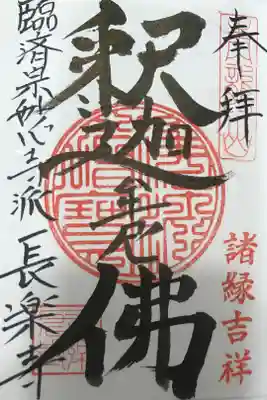 奉拝
諸縁吉祥
釈迦牟尼佛
臨済宗妙心寺派 長楽寺